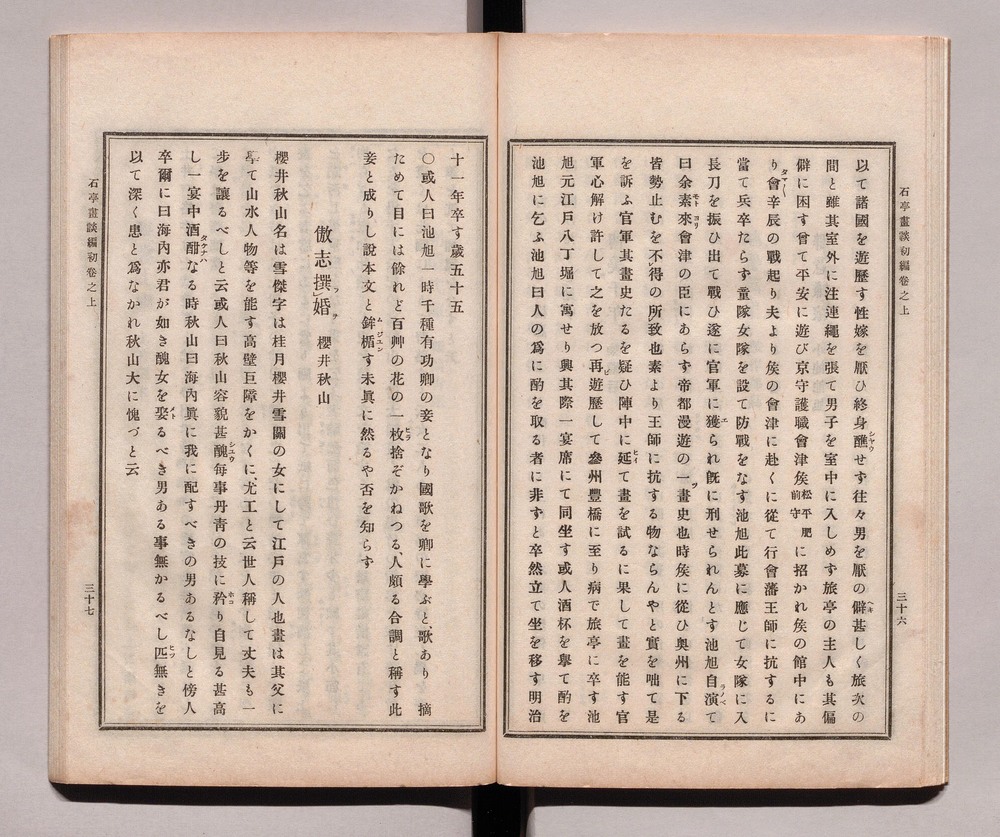 石亭畫談編初卷之上
三十六
以て諸國を遊歷す性嫁を厭ひ終身醮せず往々男を厭の僻甚しく旅次の
間と雖其室外に注連繩を張て男子を室中に入しめす旅亭の主人も其偏
僻に困す曾て平安に遊び京守護職會津矦松平肥前守に招かれ矦の館中にあ
り會辛辰の戰起り夫より矦の會津に赴くに從て行會藩王師に抗するに
當て兵卒たらず童隊女隊を設て防戰をなす池旭此募に應じて女隊に入
長刀を振ひ出て戰ひ遂に官軍に獲られ旣に刑せられんとす池旭自演て
曰余素來會津の臣にあらす帝都漫遊の一畫史也時矦に從ひ奧州に下る
皆勢止むを不得の所致也素より王師に抗する物ならんやと實を咄て是
を訴ふ官軍其畫史たるを疑ひ陣中に延て畫を試るに果して畫を能す官
軍心解け許して之を放つ再遊歷して叅州豐橋に至り病で旅亭に卒す池
旭元江戶八丁堀に寓せり興其際一宴席にて同坐す或人酒杯を擧て酌を
池旭に乞ふ池旭曰人の爲に酌を取る者に非ずと卒然立て坐を移す明治
十一年卒す歲五十五
〇或人曰池旭一時千種有功卿の妾となり國歌を卿に學ぶと、歌あり 摘
ためて目には餘れど百艸の花の一枚捨ぞかねつる人頗る合調と稱す此
妾と成りし說本文と鉾楯す未眞に然るや否を知らず
傲志撰婚 櫻井秋山
櫻井秋山名は雪傑字は桂月櫻井雪關の女にして江戶の人也畫は其父に
學て山水人物等を能す高壁巨障をかくに、尤工と云世人稱して丈夫も一
步を讓るべしと云或人曰秋山容貌甚醜每事丹靑の技に矜り自見る甚高
し一宴中酒酣なる時秋山曰海內眞に我に配すべきの男あるなしと傍人
卒爾に曰海內亦君が如き醜女を娶るべき男ある事無かるべし匹無きを
以て深く患と爲なかれ秋山大に愧づと云
石亭畫談編初卷之上
三十七